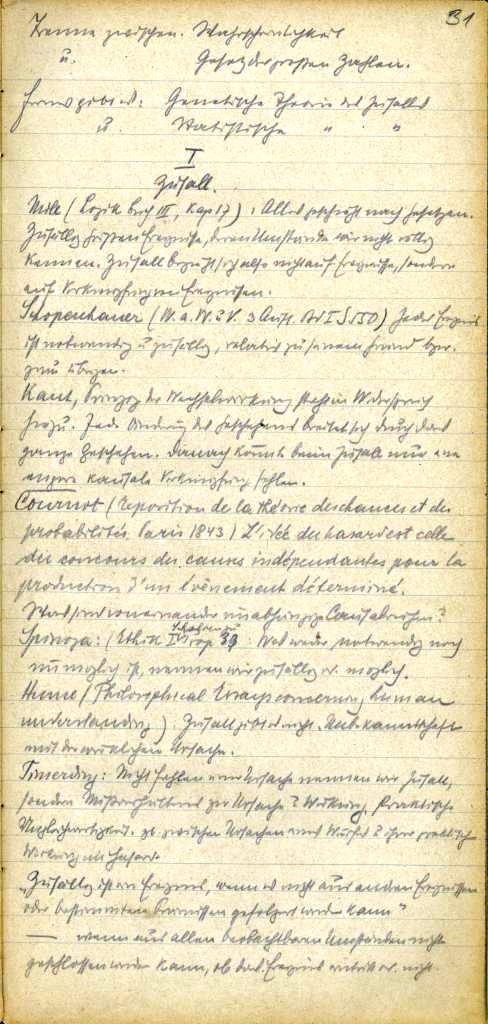 31
Trenne zwischen. Wahrscheinlichkeit
u. Gesetz der grossen Zahlen.
Ferner gibt es: Genetische Theorie des Zufalls
u. Statistische " "
I
Zufall.
Mill (Logik Buch III, Kap 17): Alles geschieht nach Gesetzen.
Zufällig heissen Ereignisse, deren Umstände wir nicht völlig
kennen. Zufall bezieht sich also nicht auf Ereignisse, sondern
auf Verknüpfung von Ereignissen.
Schopenhauer (W. a. W. u V. 3 Aufl. Bd I S 550) Jedes Ereignis
ist notwendig u zufällig, relativ zu seinem Grund bzw.
zum übrigen.
Kant, Prinzip der Wechselwirkung steht in Widerspruch
hierzu. Jede Änderung des Geschehens breitet sich durch das
ganze Geschehen. Danach könnte beim Zufall nur eine
engere kausale Verknüpfung fehlen.
Cournot (Exposition de la théorie des chances et des
probabilités. Paris 1843) L'idée du hasard est celle
du concours des causes indépendantes pour la
production d'un évènement déterminé.
Was sind voneinander unabhängige Causalreihen?
Spinoza: (Ethik I prop 33: Was weder notwendig noch
unmöglich ist, nennen wir zufällig od. möglich.
Hume (Philosophical Essays concerning human
understanding): Zufall gibt es nicht. Unbekanntschaft
mit der wirklichen Ursache.
Timerding: Nicht Fehlen einer Ursache nennen wir Zufall,
sondern Missverhältnis zw Ursache & Wirkung, Praktische
zb. zwischen Ursachen eines Wurfes & ihrer praktischen
Wirkung
"Zufällig ist ein Ereignis, wenn es nicht aus andern Ereignissen
oder bestimmten gefolgert werden kann"
— wenn aus allen beobachtbaren Umständen nicht
geschlossen werden kann, ob das Ereignis eintritt od. nicht.